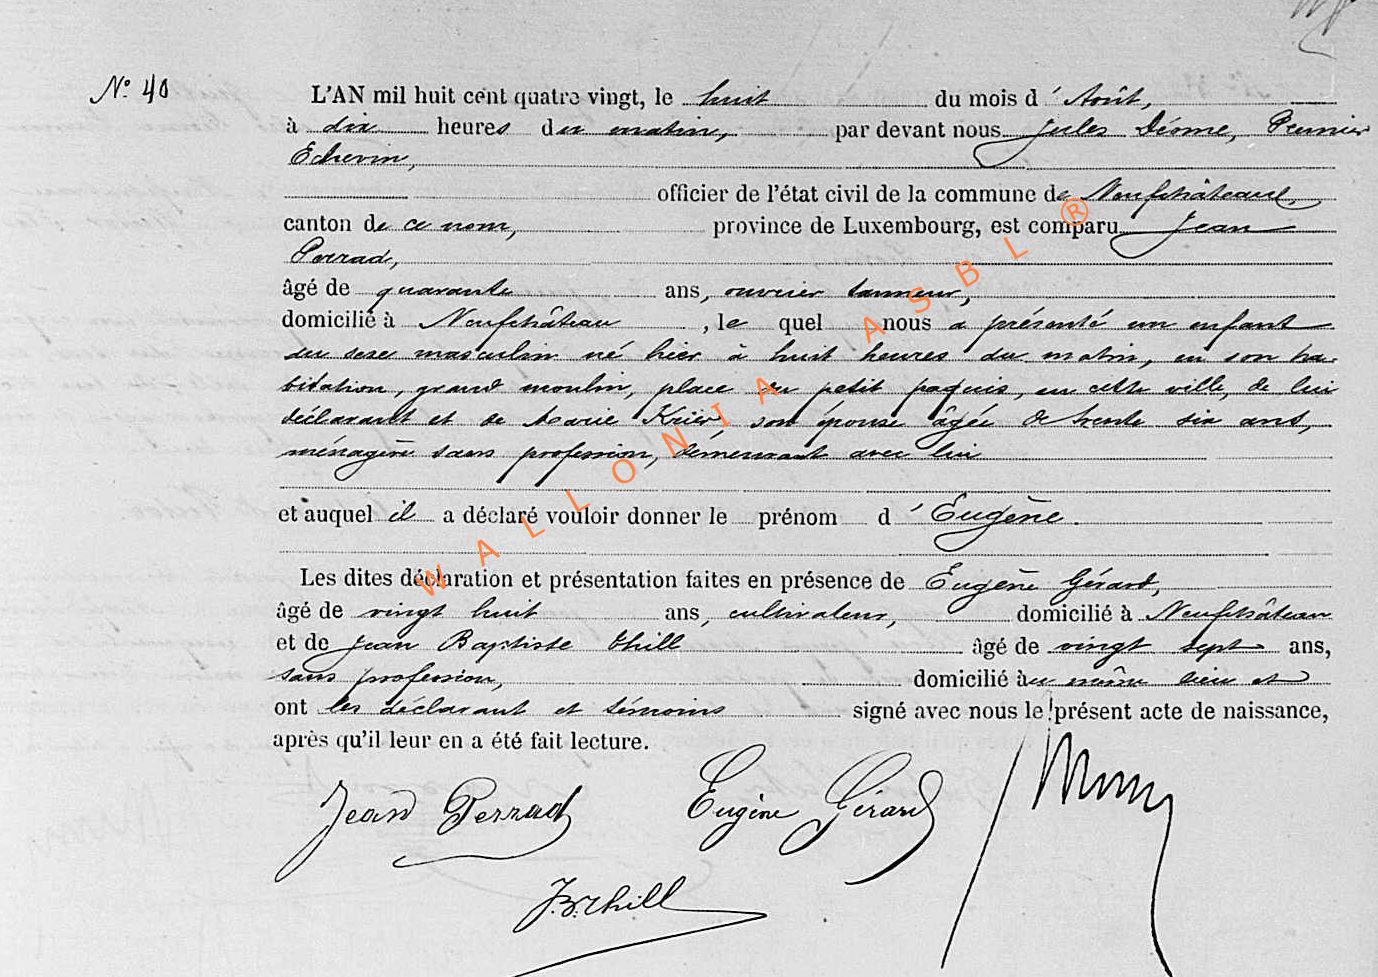 N° 40
L'AN mil huit cent quatre vingt, le huit du mois d'Août,
à dix heures du matin, par devant nous Jules Déome, Premier
Echevin,
officier de l'état civil de la commune de Neufchâteau,
canton de ce nom, province de Luxembourg, est comparu Jean
Perrad,
âgé de quarante ans, ouvrier tanneur,
domicilié à Neufchâteau, lequel nous a présenté un enfant
du sexe masculin né hier à huit heures du matin, en son ha-
bitation, grand moulin, place du petit paquis, en cette ville, de lui
déclarant et de Marie Krier, son épouse âgée de trente six ans,
ménagère sans profession, demeurant avec lui
et auquel il a déclaré vouloir donner le prénom d'Eugène.
Les dites déclaration et présentation faites en présence de Eugène Gérard,
âgé de vingt huit ans, cultivateur, domicilié à Neufchâteau
et de Jean Baptiste Thill âgé de vingt sept ans,
sans profession, domicilié au même lieu et
ont les déclarant et témoins signé avec nous le présent acte de naissance,
après qu'il leur en a été fait lecture.
Jean Perrad Eugène Gérard
J.B.Thill
WALLONIA ASBL ®